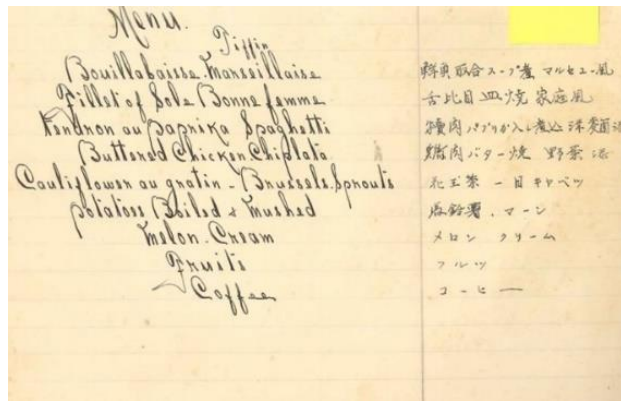 Menu.
Tiffin
Bouillabaisse Marseillaise
Fillet of Sole Bonne femme
Tendron au Paprika Spaghetti
Buttered Chicken Chiplata
Cauliflower au gratin - Brussels Sprouts
Potatoes Boiled & Mushed
Melon Cream
Fruits
Coffee
鮮魚取合スープ煮 マルセエー風
舌比目皿焼 家庭風
犢肉パプリか入煮込
鶏肉バター焼 野菜添
花玉菜 - 目キャベツ
馬鈴薯、マーシ
メロン クリーム
フルツ
コーヒー